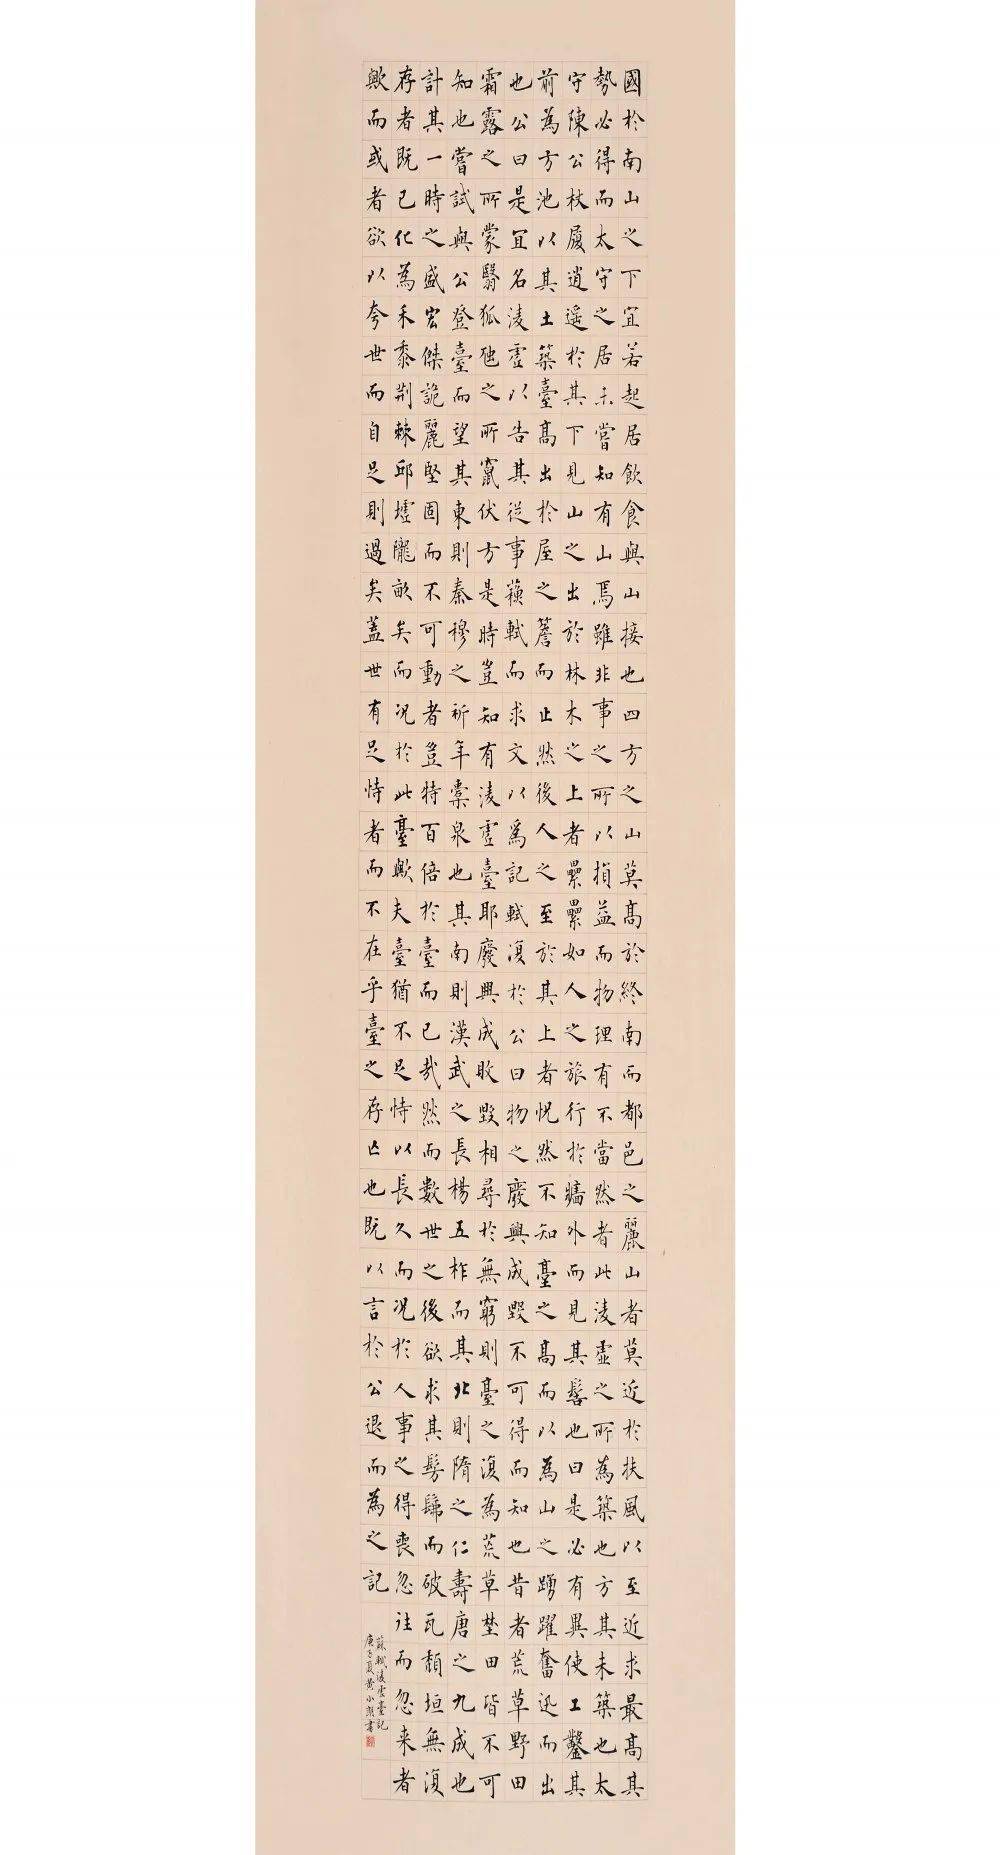 國於南山之下宜若起居飲食與山接也四方之山莫高於終南而都邑之麗山者莫近於扶風以至近求最高其
勢必得而太守之居未嘗知有山焉雖非事之所以損益而物理有不當然者此淩虛之所為築也方其未築也太
守陳公杖履逍遙於其下見山之出於林木之上者纍纍如人之旅行於牆外而見其髻也曰是必有異使工鑿其
前為方池以其土築臺高出於屋之簷而止然後人之至於其上者怳然不知臺之高而以為山之踴躍奮迅而出
也公曰是宜名淩虛以告其從事蘇軾而求文以為記軾復於公曰物之廢興成毀不可得而知也昔者荒草野田
霜露之所蒙翳狐虺之所竄伏方是時豈知有淩虛臺耶廢興成敗毀相尋於無窮則臺之復為荒草埜田皆不可
知也嘗試與公登臺而望其東則秦穆之祈年橐泉也其南則漢武之長楊五柞而其北則隋之仁壽唐之九成也
計其一時之盛宏傑詭麗堅固而不可動者豈特百倍於臺而已哉然而數世之後欲求其髣髴而破瓦頹垣無復
存者既已化為禾黍荊棘邱墟隴畝矣而況於此臺歟夫臺猶不足恃以長久而況於人事之得喪忽往而忽來者
歟而或者欲以夸世而自足則過矣蓋世有足恃者而不在乎臺之存亡也既以言於公退而為之記
蘇軾淩虛臺記
庚子夏黄小書